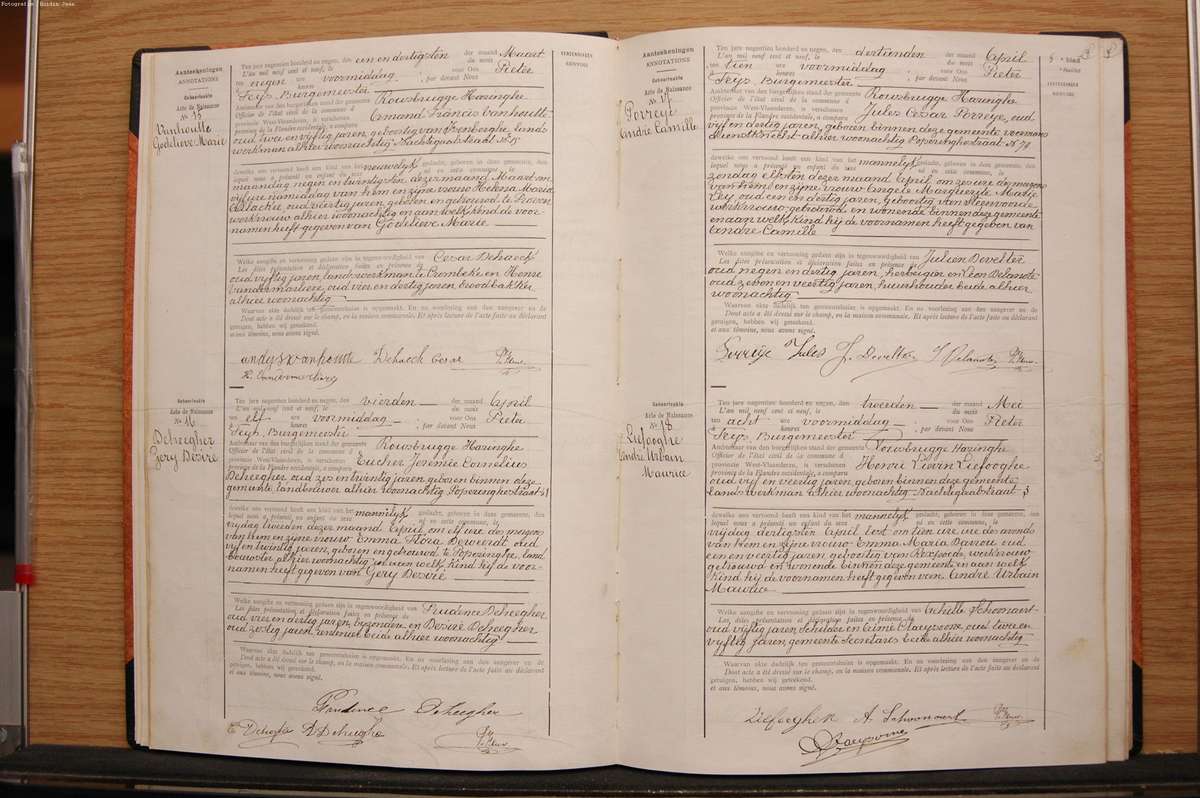 Fotografie: Guidin Jess
Aanteekeningen
ANNOTATIONS
Geboorteakte
Acte de Naissance
N° 15
Vanhoutte
Godelieve Marie
Ten jare negentien honderd en negen, den een en dertigsten der maand Maart
L'an mil neuf cent et neuf, le du mois
ten negen ure voormiddag voor Ons Pieter
à heures , par devant Nous
Seys Burgemeester
Ambtenaar van den burgerlijken stand der gemeente Rousbrugge Haringhe
Officier de l'état civil de la commune d
provincie West-Vlaanderen, is verschenen Armand Francis Vanhoutte
province de la Flandre occidentale, a comparu
oud twee en vijftig jaren, geboortig van Isenberghe lands
werkman alhier woonachtig Nachtegaalstraat N° 15
dewelke ons vertoond heeft een kind van het vrouwelijk geslacht, geboren in deze gemeente, den
lequel nous a présenté un enfant du sexe né en cette commune, le
maandag negen en twintigsten dezer maand Maart om
vijf ure namiddag van hem en zijne vrouw Helena Maria
oud veertig jaren, geboren en getrouwd te Proven
werkvrouw alhier woonachtig en aan welk kind de voor
namen heeft gegeven van Godelieve Marie
Welke aangifte en vertooning gedaan zijn in tegenwoordigheid van Cesar Dehaeck
Les dites présentation et déclaration faites en présence de
oud vijftig jaren, landswerkman te Crombeke en Henri
Vandermarliere oud vier en dertig jaren broodbakker
alhier woonachtig
Waarvan akte dadelijk ten gemeentehuize is opgemaakt. En na voorlezing aan den aangever en de
Dont acte a été dressé sur le champ, en la maison communale. Et après lecture de l'acte faite au déclarant
getuigen, hebben wij geteekend.
et aux témoins, nous avons signé.
Vanhoutte Dehaeck Cesar
Geboorteakte
Acte de Naissance
N° 16
Deheegher
Gery Désiré
Ten jare negentien honderd en negen, den vierden der maand April
L'an mil neuf cent et neuf, le du mois
ten elf ure voormiddag voor Ons Pieter
à heures , par devant Nous
Seys Burgemeester
Ambtenaar van den burgerlijken stand der gemeente Rousbrugge Haringhe
Officier de l'état civil de la commune d
provincie West-Vlaanderen, is verschenen Eucher Jeremie Cornelius
province de la Flandre occidentale, a comparu
Deheegher oud zes en twintig jaren, geboren binnen deze
gemeente landbouwer alhier woonachtig Poperinghestraat
dewelke ons vertoond heeft een kind van het mannelijk geslacht, geboren in deze gemeente, den
lequel nous a présenté un enfant du sexe né en cette commune, le
vrijdag tweeden dezer maand April om elf ure des morgens
van hem en zijne vrouw Emma Flora Dewaerdt oud
vijf en twintig jaren, geboren en getrouwd te Poperinghe, land
bouwster alhier woonachtig en aan welk kind hij de voor
namen heeft gegeven van Gery Désiré
Welke aangifte en vertooning gedaan zijn in tegenwoordigheid van Prudence Deheegher
Les dites présentation et déclaration faites en présence de
oud vier en dertig jaren, byzondere en Desiré Deheegher
oud zestig jaren, rentenier beide alhier woonachtig
Waarvan akte dadelijk ten gemeentehuize is opgemaakt. En na voorlezing aan den aangever en de
Dont acte a été dressé sur le champ, en la maison communale. Et après lecture de l'acte faite au déclarant
getuigen, hebben wij geteekend.
et aux témoins, nous avons signé.
Prudence Deheegher
Aanteekeningen
ANNOTATIONS
Geboorteakte
Acte de Naissance
N° 17
Porreÿe
André Camille
Ten jare negentien honderd en negen, den dertienden der maand April
L'an mil neuf cent et neuf, le du mois
ten tien ure voormiddag voor Ons Pieter
à heures , par devant Nous
Seys Burgemeester
Ambtenaar van den burgerlijken stand der gemeente Rousbrugge Haringhe
Officier de l'état civil de la commune d
provincie West-Vlaanderen, is verschenen Jules Cesar Porreÿe, oud
province de la Flandre occidentale, a comparu
vijf en dertig jaren, geboren binnen deze gemeente
dienstknecht alhier woonachtig Poperinghestraat N° 74
dewelke ons vertoond heeft een kind van het mannelijk geslacht, geboren in deze gemeente, den
lequel nous a présenté un enfant du sexe né en cette commune, le
zondag elfsten dezer maand April om zes ure des morgens
van hem en zijne vrouw Angele Marguerite
oud een en dertig jaren, geboortig van Steenvoorde
werkvrouw getrouwd en wonende binnen deze gemeente
en aan welk kind hij de voornamen heeft gegeven van
André Camille
Welke aangifte en vertooning gedaan zijn in tegenwoordigheid van Julien Develter
Les dites présentation et déclaration faites en présence de
oud negen en dertig jaren, herbergier en Leon Delanote
oud zeven en veertig jaren, huurhouder beide alhier
woonachtig
Waarvan akte dadelijk ten gemeentehuize is opgemaakt. En na voorlezing aan den aangever en de
Dont acte a été dressé sur le champ, en la maison communale. Et après lecture de l'acte faite au déclarant
getuigen, hebben wij geteekend.
et aux témoins, nous avons signé.
Porreÿe Jules J. Develter Delanote
Geboorteakte
Acte de Naissance
N° 18
Liefooghe
André Urbain
Maurice
Ten jare negentien honderd en negen, den tweeden der maand Mei
L'an mil neuf cent et neuf, le du mois
ten acht ure voormiddag voor Ons Pieter
à heures , par devant Nous
Seys Burgemeester
Ambtenaar van den burgerlijken stand der gemeente Rousbrugge Haringhe
Officier de l'état civil de la commune d
provincie West-Vlaanderen, is verschenen Henri Lievin Liefooghe
province de la Flandre occidentale, a comparu
oud vijf en veertig jaren, geboren binnen deze gemeente
landswerkman alhier woonachtig Nachtegaalstraat
dewelke ons vertoond heeft een kind van het mannelijk geslacht, geboren in deze gemeente, den
lequel nous a présenté un enfant du sexe né en cette commune, le
vrijdag dertigsten April lest om tien ure des avonds
van hem en zijne vrouw Emma Maria Deroou oud
een en veertig jaren, geboortig van Rexpoede, werkvrouw
getrouwd en wonende binnen deze gemeente en aan welk
kind hij de voornamen heeft gegeven van André Urbain
Maurice
Welke aangifte en vertooning gedaan zijn in tegenwoordigheid van Achille Schoonaert
Les dites présentation et déclaration faites en présence de
oud vijftig jaren, schilder en Aimé Claeyssone oud twee en
vijftig jaren, gemeente secretaris beide alhier woonachtig
Waarvan akte dadelijk ten gemeentehuize is opgemaakt. En na voorlezing aan den aangever en de
Dont acte a été dressé sur le champ, en la maison communale. Et après lecture de l'acte faite au déclarant
getuigen, hebben wij geteekend.
et aux témoins, nous avons signé.
Liefooghe H A. Schoonaert
Claeyssone